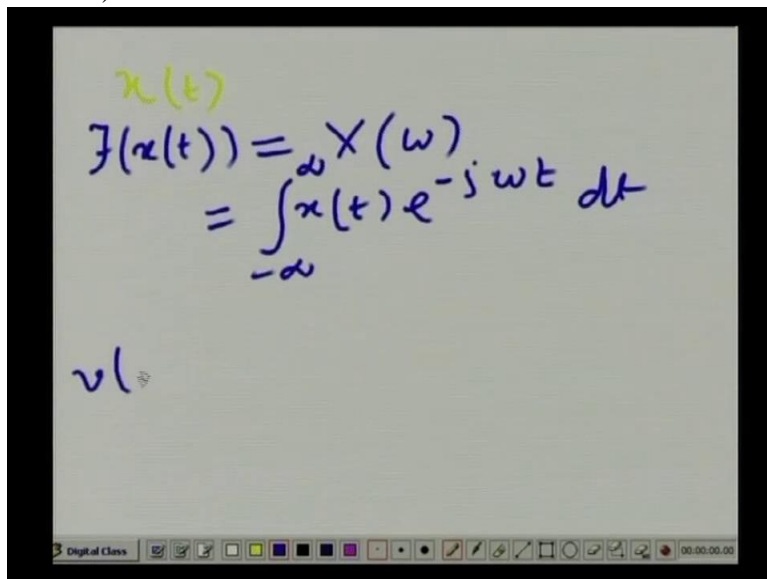 x(t)
F(x(t)) = X(ω)
= ∫_{-∞}^{∞} x(t) e^{-jωt} dt
v(
Digital Class 00:00:00.00